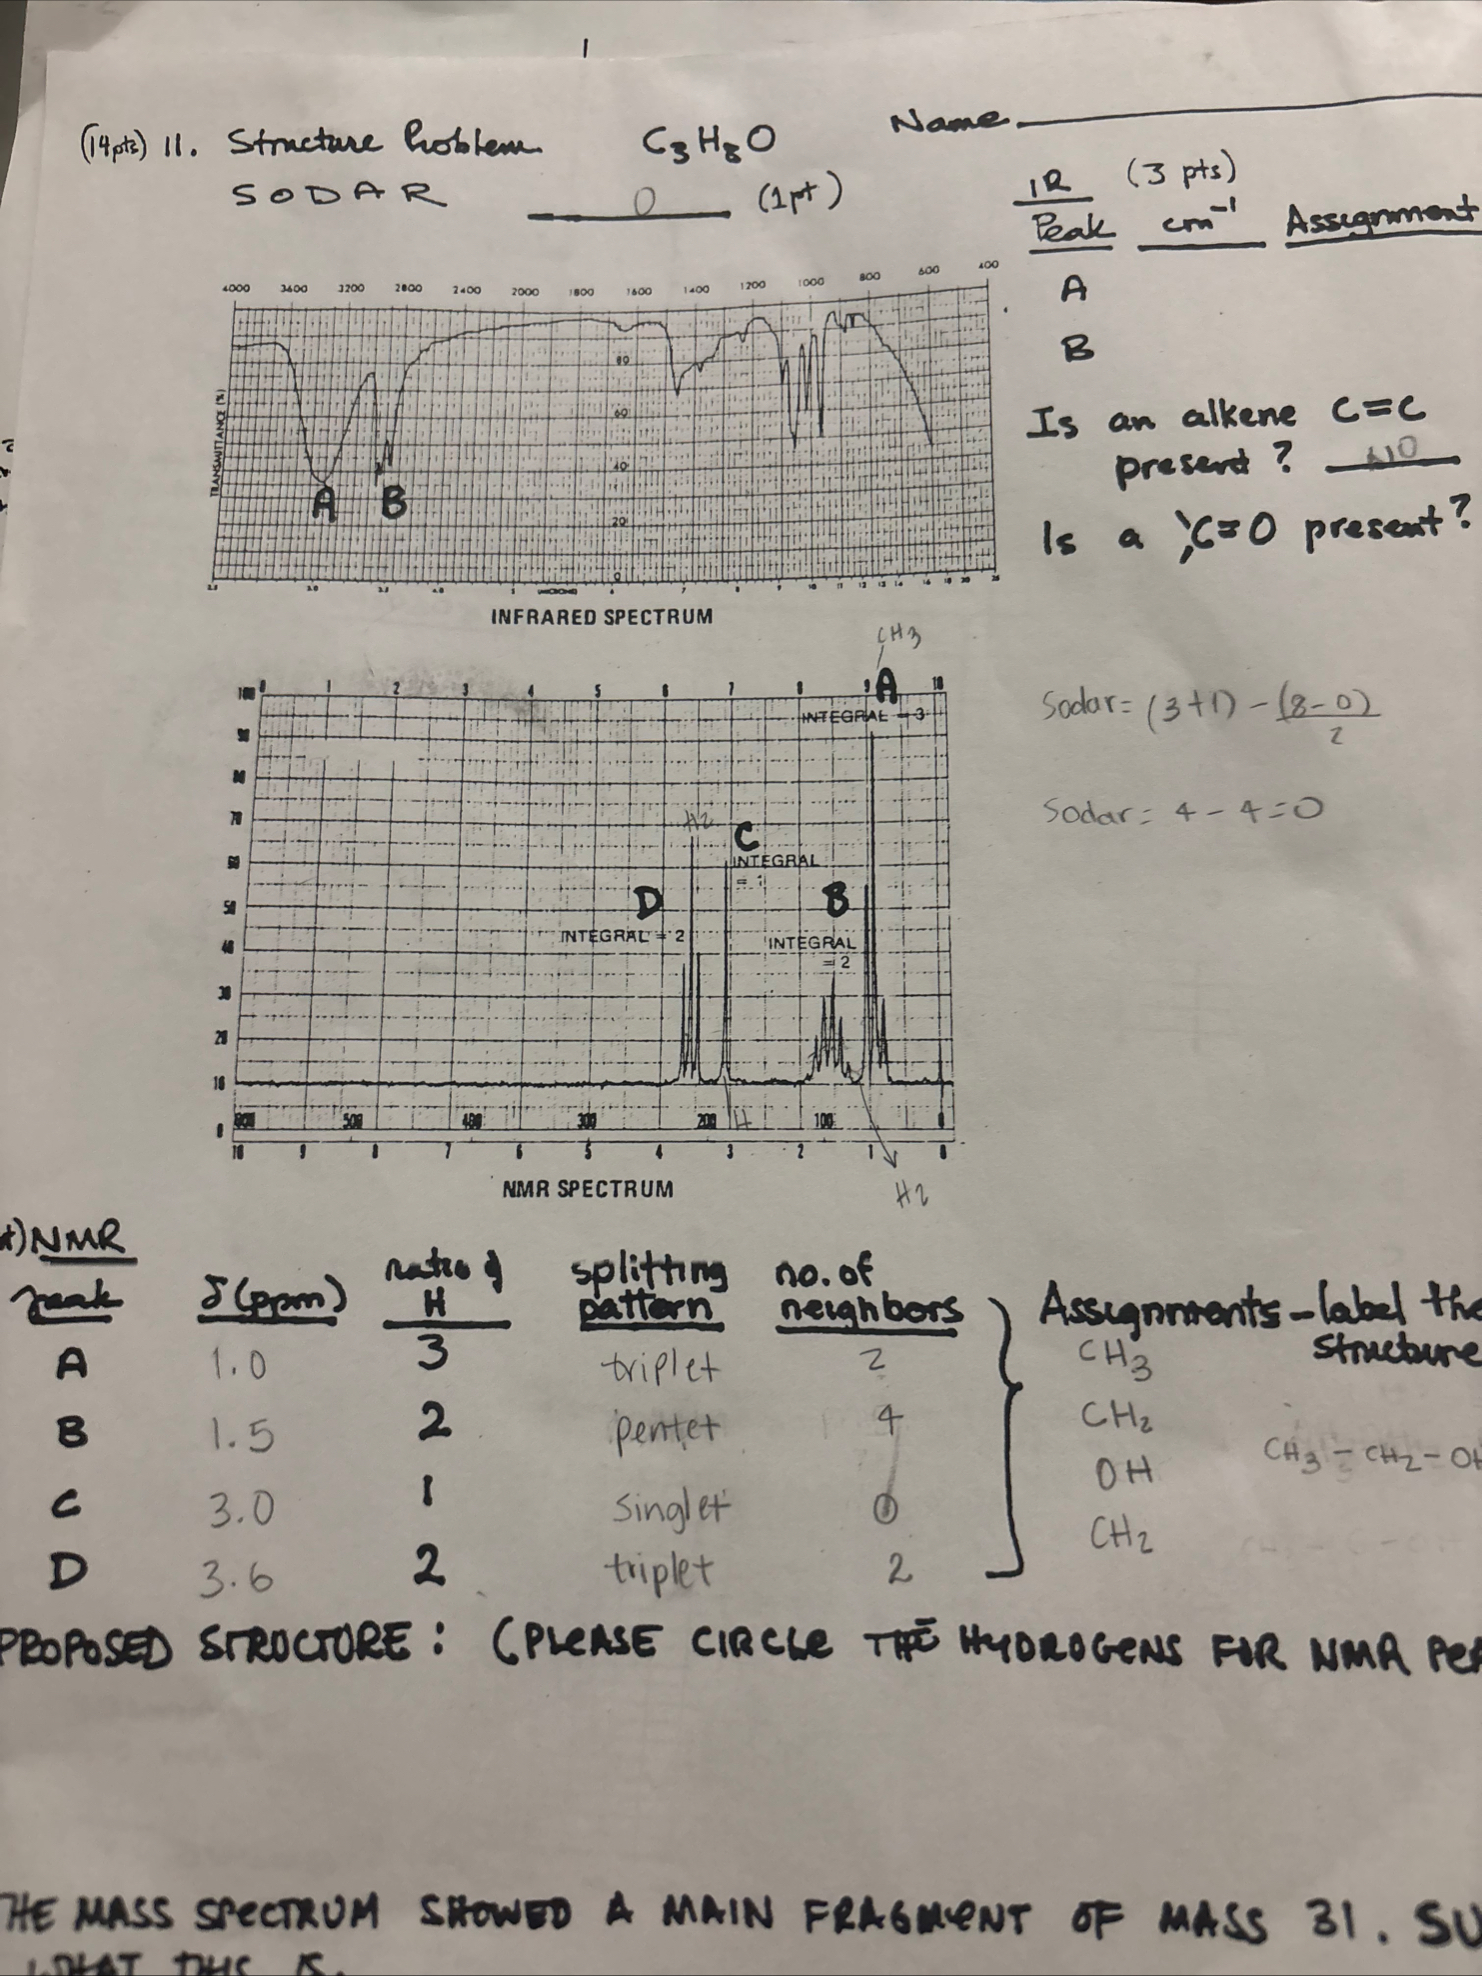 (14pts) 11. Structure Problem C3H8O Name
SODAR 0 (1pt)
IR (3 pts)
Peak cm-1 Assignment
A
B
Is an alkene C=C
present? NO
Is a C=O present?
4000 3600 3200 2800 2400 2000 1800 1600 1400 1200 1000 800 600 400
TRANSMITTANCE (%)
80
60
40
20
0
A B
INFRARED SPECTRUM
CH3
A
0 1 2 3 4 5 6 7 8 9 10
100
90
80
70
60
50
40
30
20
10
0
INTEGRAL = 3
H2
C
INTEGRAL
D
INTEGRAL = 2
B
INTEGRAL
= 2
500 400 300 200 H 100 0
10 9 8 7 6 5 4 3 2 1 0
H2
NMR SPECTRUM
Sodar = (3+1) - (8-0)
2
Sodar = 4 - 4 = 0
NMR
peak δ (ppm) ratio of H splitting pattern no. of neighbors Assignments - label the structure
A 1.0 3 triplet 2 CH3
B 1.5 2 pentet 4 CH2
CH3 - CH2 - OH
C 3.0 1 singlet 0 OH
D 3.6 2 triplet 2 CH2
PROPOSED STRUCTURE: (PLEASE CIRCLE THE HYDROGENS FOR NMR
THE MASS SPECTRUM SHOWED A MAIN FRAGMENT OF MASS 31.
WHAT THIS IS.